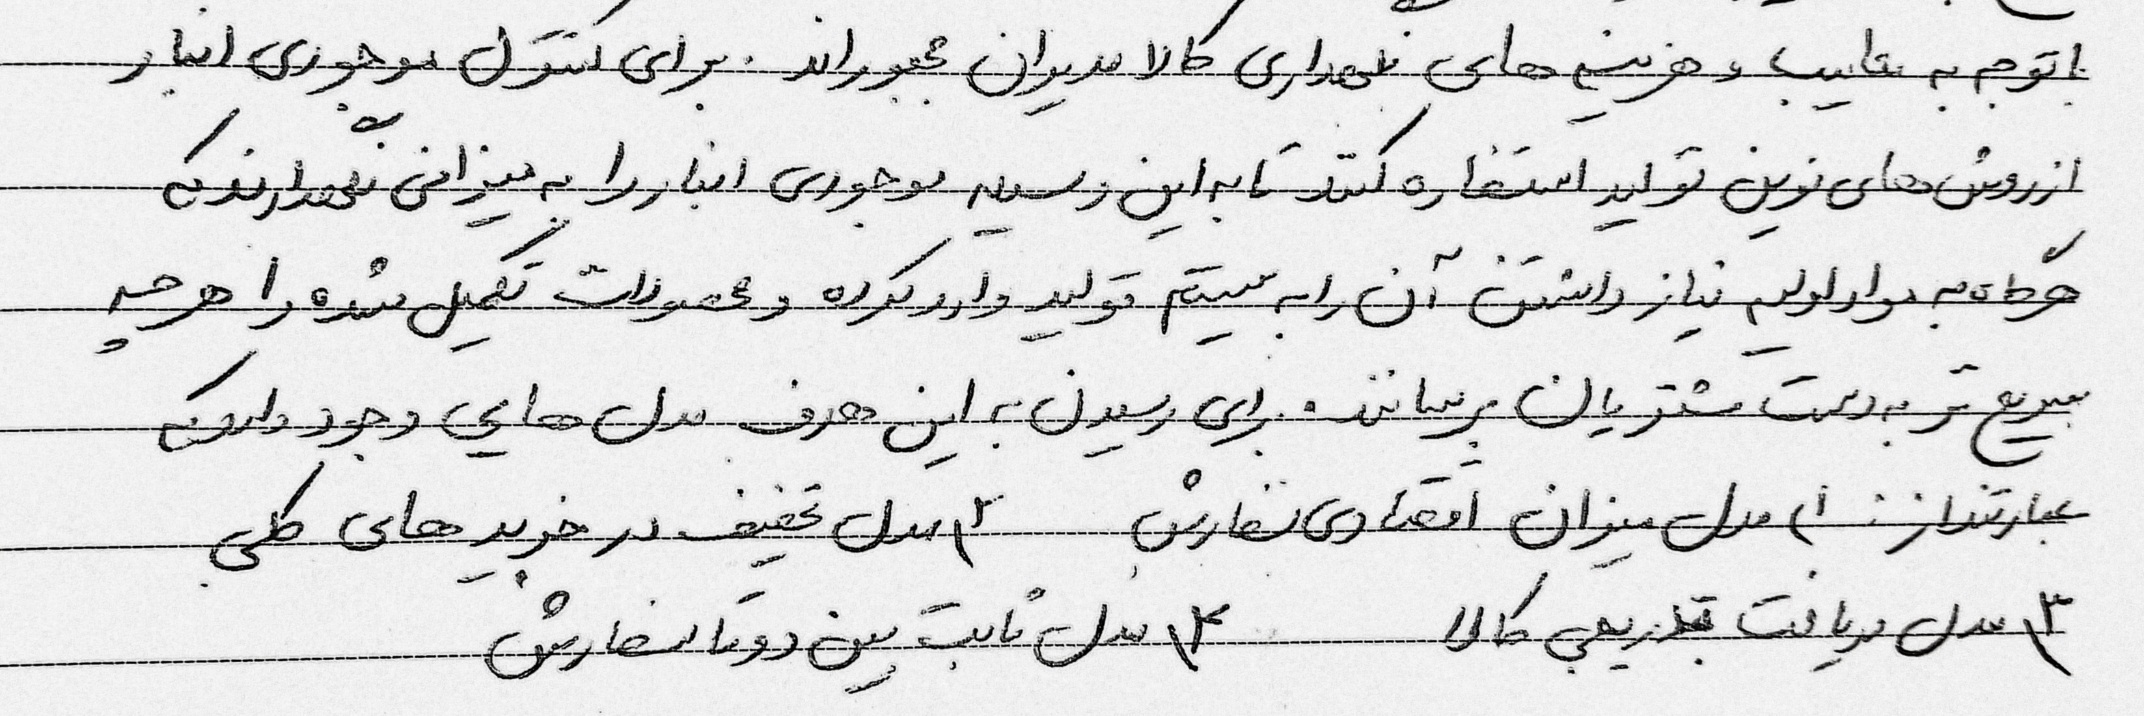 باتوجه به معایب و هزینه های نگهداری کالا مدیران مجبوراند . برای کنترل موجودی انبار
از روش های نوین تولید استفاده کنند تا به این وسیله موجودی انبار را به میزانی نگهدارند که
هرگاه به مواد اولیه نیاز داشتن آن را به سیستم تولید وارد کرده و محصولات تکمیل شده را هر چه
سریع تر به دست مشتریان برسانند. برای رسیدن به این هدف مدل هایی وجود دارد که
عبارتنداز : ۱) مدل میزان اقتصادی سفارش ۲) مدل تخفیف در خرید های کلی
۳) مدل دریافت تدریجی کالا ۴) مدل ثابت بین دوتا سفارش